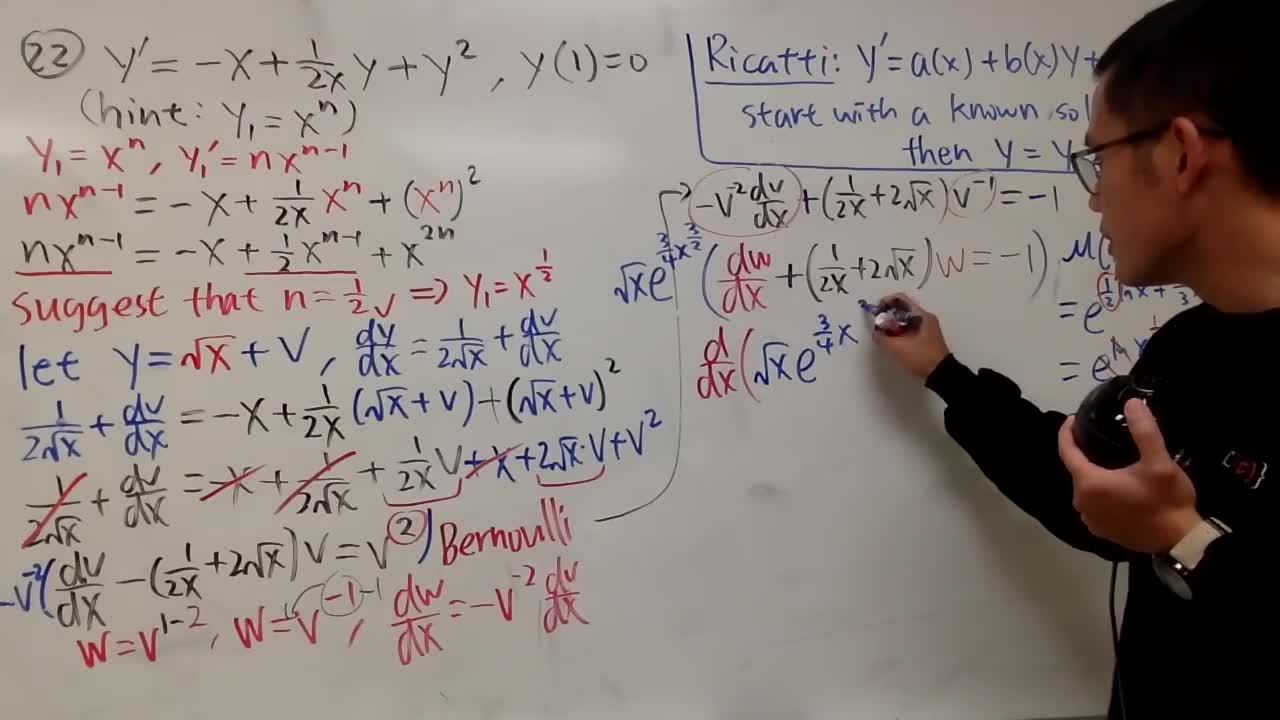 22 y' = -x + 1/2x y + y², y(1)=0
(hint: y₁ = xⁿ)
y₁ = xⁿ, y₁' = nxⁿ⁻¹
nxⁿ⁻¹ = -x + 1/2x xⁿ + (xⁿ)²
nxⁿ⁻¹ = -x + 1/2 xⁿ⁻¹ + x²ⁿ
suggest that n = 1/2 ✓ ⇒ y₁ = x^(1/2)
let y = √x + v, dy/dx = 1/2√x + dv/dx
1/2√x + dv/dx = -x + 1/2x (√x + v) + (√x + v)²
1/2√x + dv/dx = -x + 1/2√x + 1/2x v + x + 2√x·v + v²
-v⁻²(dv/dx - (1/2x + 2√x)v = v²) Bernoulli
w = v¹⁻², w = v⁻¹ ⁻¹, dw/dx = -v⁻² dv/dx
Ricatti: y' = a(x) + b(x)y +
start with a known
then y = y
-v² dv/dx + (1/2x + 2√x) v⁻¹ = -1
√x e^(3/4 x^(3/2)) (dw/dx + (1/2x + 2√x)w = -1)
d/dx (√x e^(3/4 x